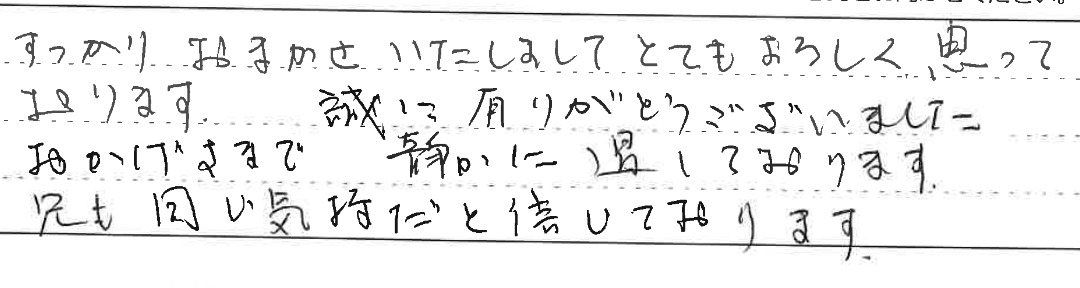 すっかりおまかせいたしましてとてもよろしく思って
おります。 誠に有りがとうございました
おかげさまで 静かに過しております。
兄も同じ気持だと信じております。